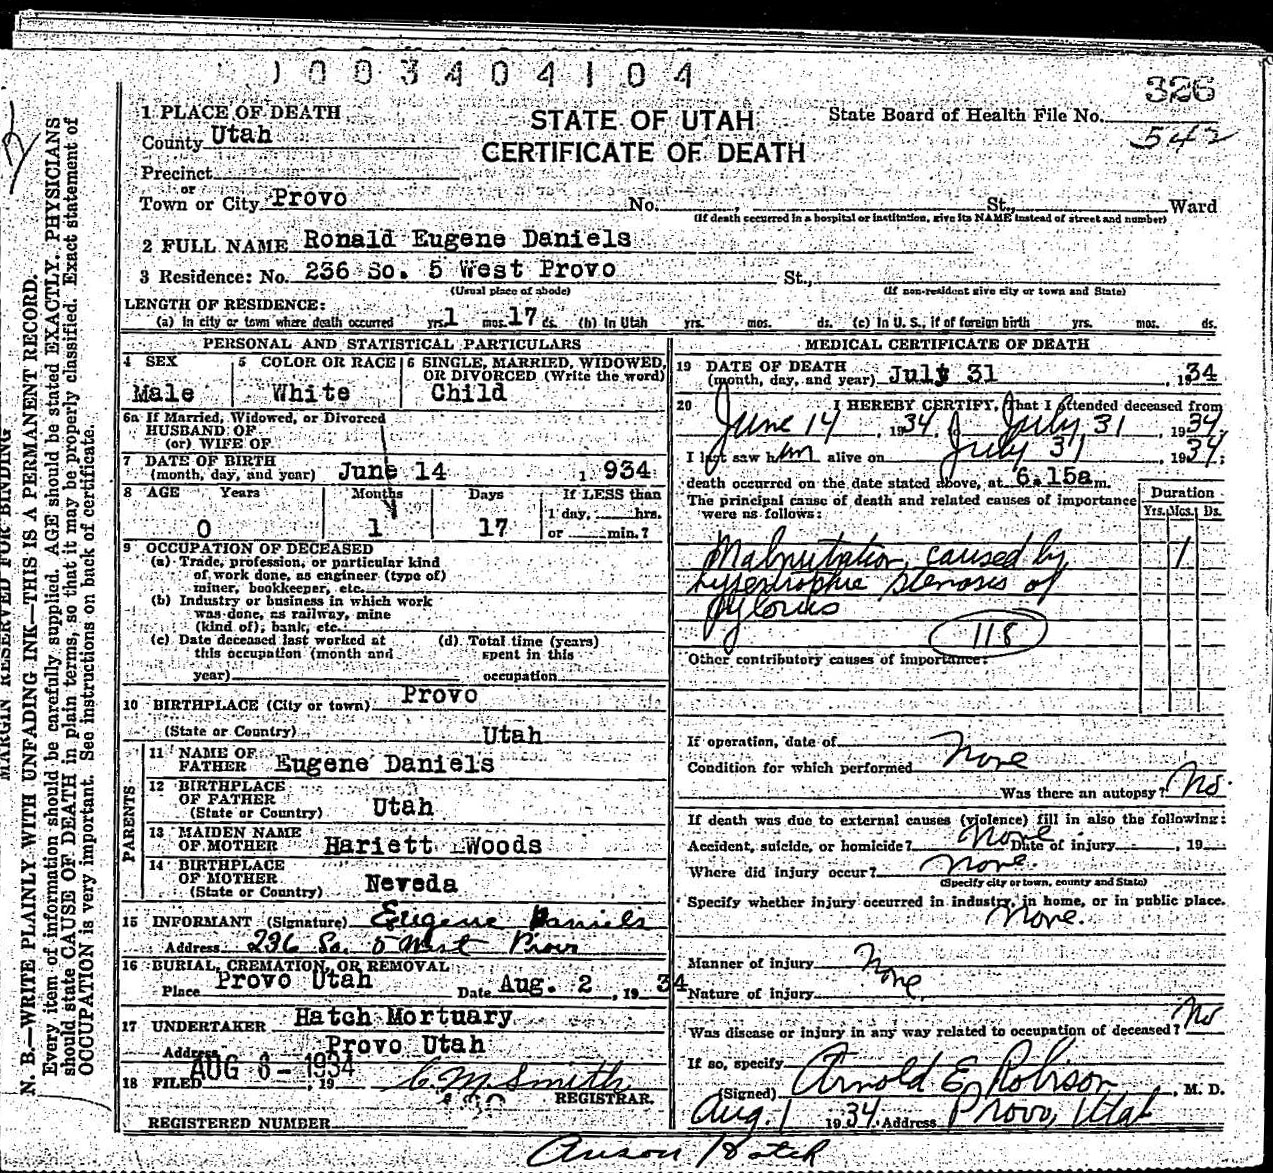 1003404104
326
1 PLACE OF DEATH
STATE OF UTAH
State Board of Health File No.
542
County Utah
CERTIFICATE OF DEATH
Precinct
or
Town or City Provo No. , St., Ward
(If death occurred in a hospital or institution, give its NAME instead of street and number)
2 FULL NAME Ronald Eugene Daniels
3 Residence: No. 236 So. 5 West Provo St.,
(Usual place of abode) (If non-resident give city or town and State)
LENGTH OF RESIDENCE:
(a) in city or town where death occurred yrs. 1 mos. 17 ds. (b) In Utah yrs. mos. ds. (c) In U. S., if of foreign birth yrs. mos. ds.
PERSONAL AND STATISTICAL PARTICULARS
4 SEX 5 COLOR OR RACE 6 SINGLE, MARRIED, WIDOWED, OR DIVORCED (Write the word)
Male White Child
6a If Married, Widowed, or Divorced
HUSBAND OF
(or) WIFE OF
7 DATE OF BIRTH
(month, day, and year) June 14 1934
8 AGE Years Months Days If LESS than
1 day, hrs.
0 1 17 or min.?
9 OCCUPATION OF DECEASED
(a) Trade, profession, or particular kind
of work done, as engineer (type of)
miner, bookkeeper, etc.
(b) Industry or business in which work
was done, as railway, mine
(kind of); bank, etc.
(c) Date deceased last worked at (d) Total time (years)
this occupation (month and spent in this
year) occupation
10 BIRTHPLACE (City or town) Provo
(State or Country) Utah
PARENTS
11 NAME OF
FATHER Eugene Daniels
12 BIRTHPLACE
OF FATHER
(State or Country) Utah
13 MAIDEN NAME
OF MOTHER Hariett Woods
14 BIRTHPLACE
OF MOTHER
(State or Country) Neveda
15 INFORMANT (Signature) Eugene Daniels
Address 236 So. 5 West Provo
16 BURIAL, CREMATION, OR REMOVAL
Place Provo Utah Date Aug. 2, 1934
17 UNDERTAKER Hatch Mortuary
Address Provo Utah
18 FILED AUG 6 - 1934, 19 C M Smith
REGISTRAR.
REGISTERED NUMBER
MEDICAL CERTIFICATE OF DEATH
19 DATE OF DEATH
(month, day, and year) July 31, 1934
20 I HEREBY CERTIFY, That I attended deceased from
June 14, 1934, to July 31, 1934
I last saw him alive on July 31, 1934;
death occurred on the date stated above, at 6.15a m.
The principal cause of death and related causes of importance
were as follows:
Duration
Yrs. Mos. Ds.
Malnutrition, caused by 1
hypertrophic stenosis of
pylorus
118
Other contributory causes of importance:
If operation, date of
Condition for which performed None
Was there an autopsy? No
If death was due to external causes (violence) fill in also the following:
Accident, suicide, or homicide? None Date of injury , 19
Where did injury occur? None.
(Specify city or town, county and State)
Specify whether injury occurred in industry, in home, or in public place.
None.
Manner of injury None
Nature of injury
Was disease or injury in any way related to occupation of deceased? No
If so, specify
(Signed) Arnold E. Robison, M. D.
Aug. 1 1934. Address Provo, Utah
Anson Hatch
MARGIN RESERVED FOR BINDING
N. B.—WRITE PLAINLY WITH UNFADING INK—THIS IS A PERMANENT RECORD.
Every item of information should be carefully supplied. AGE should be stated EXACTLY. PHYSICIANS
should state CAUSE OF DEATH in plain terms, so that it may be properly classified. Exact statement of
OCCUPATION is very important. See instructions on back of certificate.